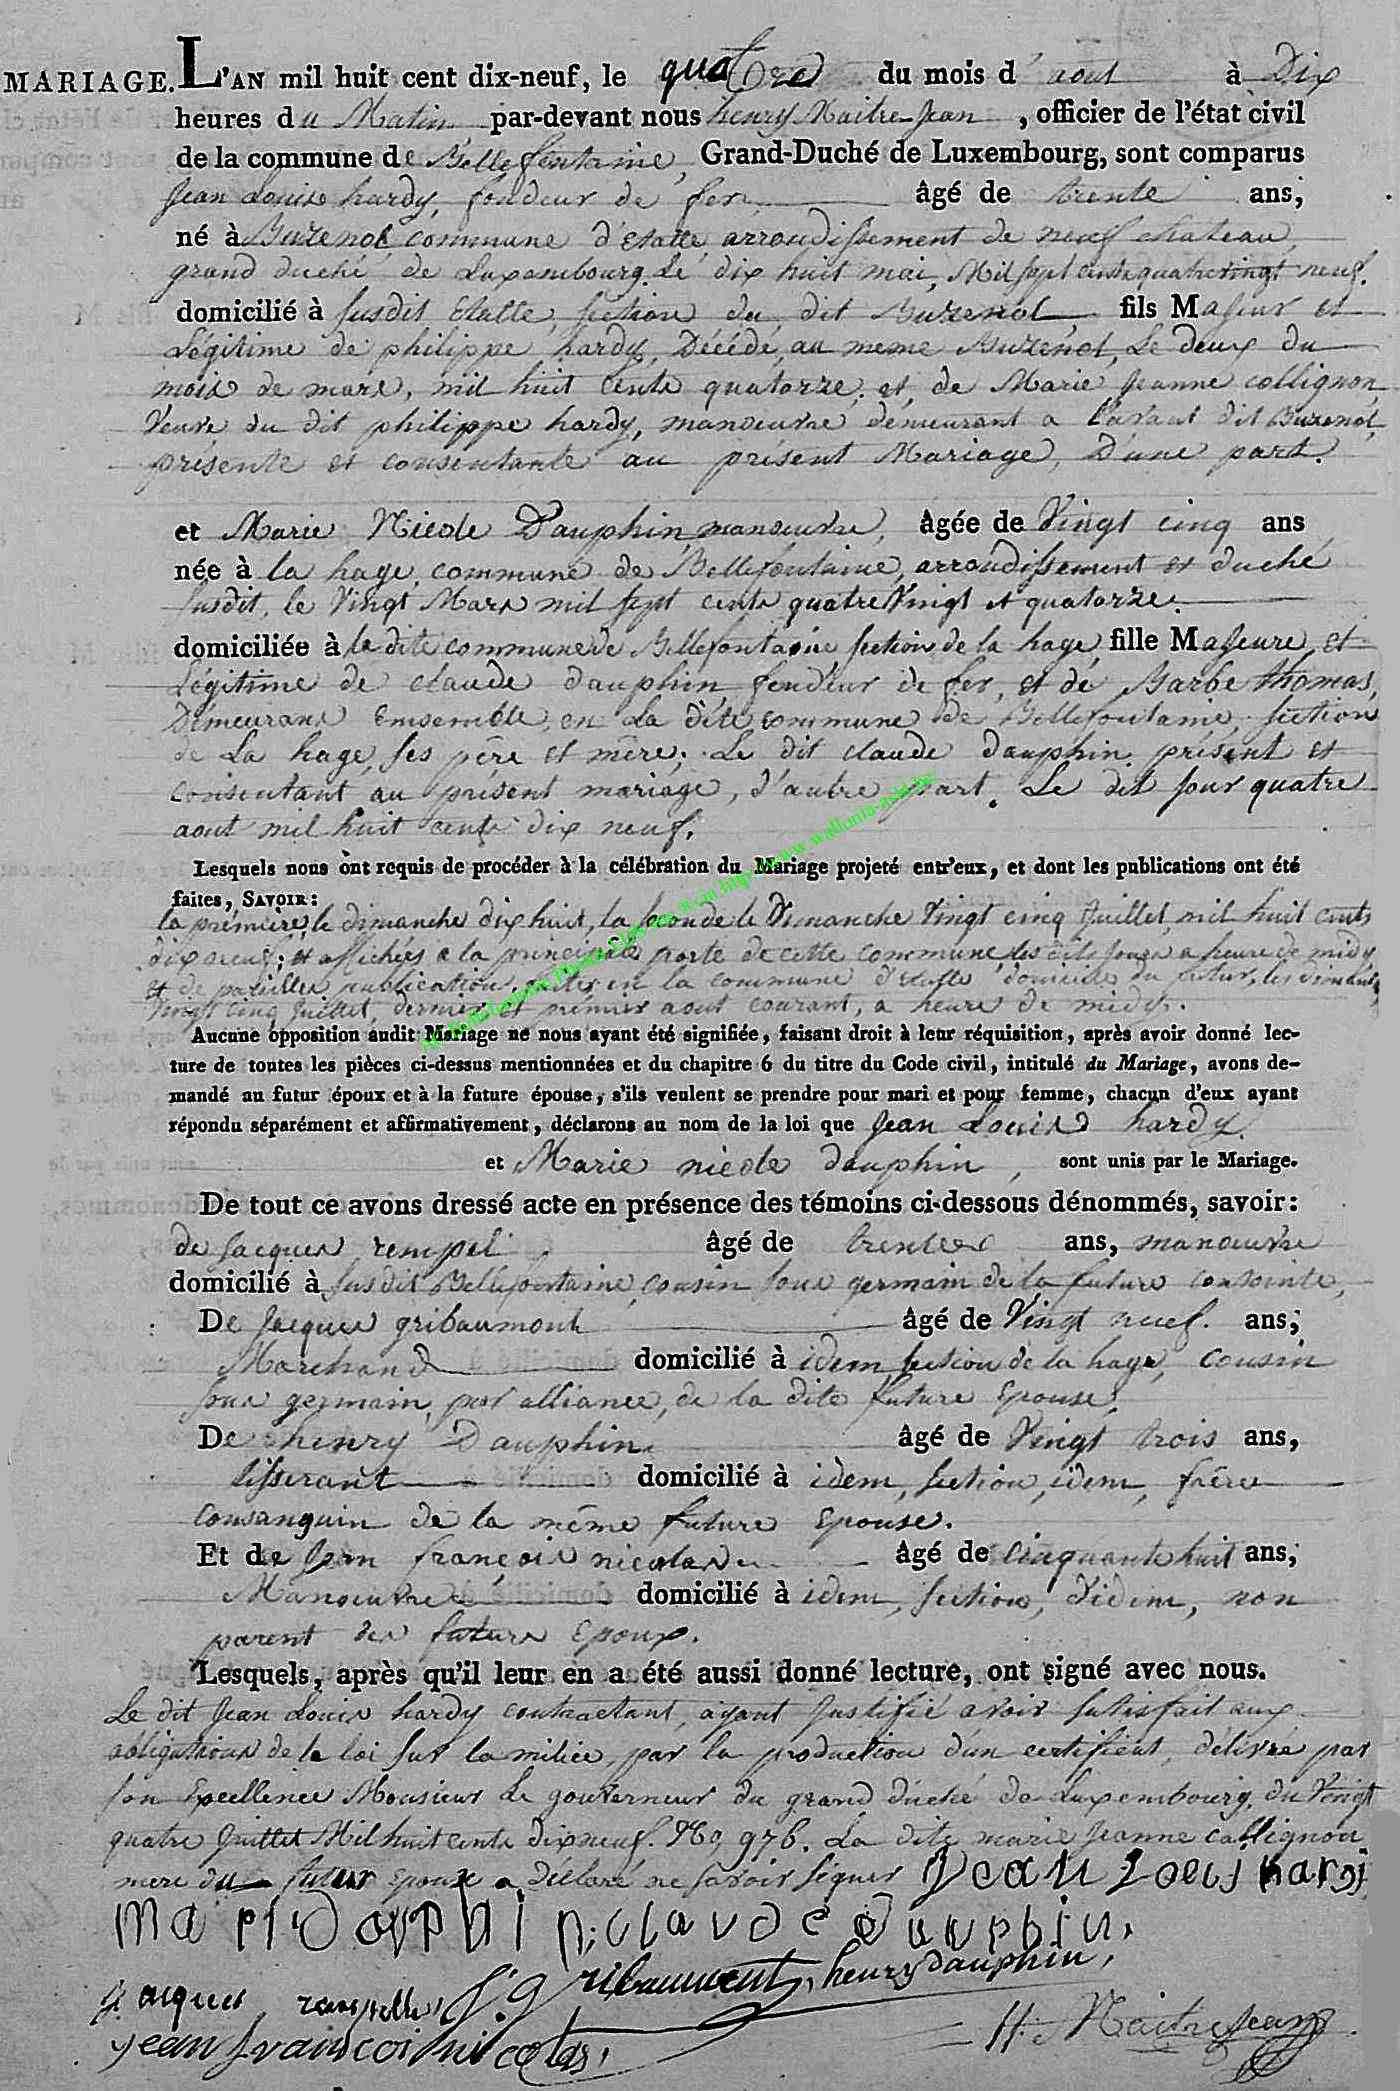 MARIAGE. L'AN mil huit cent dix-neuf, le quatre du mois d'aout à Dix
heures du Matin par-devant nous henry Maitre-Jean, officier de l'état civil
de la commune de Bellefontaine, Grand-Duché de Luxembourg, sont comparus
Jean Louis hardy, fondeur de fer, âgé de trente ans,
né à Buzenol commune d'Etalle, arrondissement de neuf chateau,
grand duché de Luxembourg. Le dix huit mai, Mil sept cents quatrevingt neuf.
domicilié à susdit Etalle, section du dit Buzenol, fils Majeur et
Légitime de philippe hardy, Décédé au meme Buzenol, Le deux du
mois de mars, mil huit cents quatorze. et, de Marie Jeanne collignon,
Veuve du dit philippe hardy, manoeuvre demeurant a l'avant dit Buzenol,
présente et consentante au présent Mariage, D'une part.
et Marie Nicole Dauphin, manoeuvre, âgée de Vingt cinq ans
née à la hage, commune de Bellefontaine, arrondissement et duché
susdit, le Vingt Mars mil sept cents quatre Vingt et quatorze.
domiciliée à la dite commune de Bellefontaine, section de la hage, fille Majeure, et
Légitime de claude dauphin, fendeur de fer, et de Barbe thomas,
Demeurans Ensemble, en La dite commune de Bellefontaine, section
de La hage, ses père et mère; Le dit claude dauphin présent et
consentant au présent mariage, d'autre part. Le dit jour quatre
aout mil huit cents dix neuf.
Lesquels nous ont requis de procéder à la célébration du Mariage projeté entr'eux, et dont les publications ont été
faites, SAVOIR:
la première, le dimanche dix huit, la seconde le Dimanche Vingt cinq Juillet, mil huit cents
dix neuf; et affichées a la principale porte de cette commune, les dits jours a heure de midy
et de pareilles publications, faites en la commune d'Etalle, domicile du futur, les dimanches
Vingt cinq Juillet, dernier et premier aout courant, a heure de midy.
Aucune opposition audit Mariage ne nous ayant été signifiée, faisant droit à leur réquisition, après avoir donné lec-
ture de toutes les pièces ci-dessus mentionnées et du chapitre 6 du titre du Code civil, intitulé du Mariage, avons de-
mandé au futur époux et à la future épouse, s'ils veulent se prendre pour mari et pour femme, chacun d'eux ayant
répondu séparément et affirmativement, déclarons au nom de la loi que Jean Louis hardy
et Marie nicole dauphin, sont unis par le Mariage.
De tout ce avons dressé acte en présence des témoins ci-dessous dénommés, savoir:
de Jacques rempel. âgé de trente ans, manoeuvre
domicilié à susdit Bellefontaine, cousin sous germain de la future conjointe,
De Jacques gribaumont âgé de Vingt neuf. ans,
Marchand domicilié à idem, section de la hage, cousin
sous germain, par alliance, de la dite future Epouse.
De henry Dauphin âgé de Vingt trois ans,
tisserant domicilié à idem, section, idem, frère
consanguin de la même future Epouse.
Et de Jean françois nicolas âgé de cinquante huit ans,
Manoeuvre domicilié à idem, section, d'idem, non
parent des futurs Epoux.
Lesquels, après qu'il leur en a été aussi donné lecture, ont signé avec nous.
Le dit Jean Louis hardy contractant, ayant Justifié avoir satisfait aux
obligations de la loi sur la milice, par la production d'un certificat, délivré par
son Excellence Monsieur Le gouverneur du grand duché de Luxembourg, du Vingt
quatre Juillet Mil huit cents dix neuf. No, 976. La dite marie Jeanne collignon
mere du futur Epoux a déclaré ne savoir signer Jean Louis hardi
mari dophin, claude dauphin,
jacques rempelle, J. Gribaumont, henry dauphin,
jean francoi nicolas, H. Maitrejean
http://www.wallonia-asbl.be